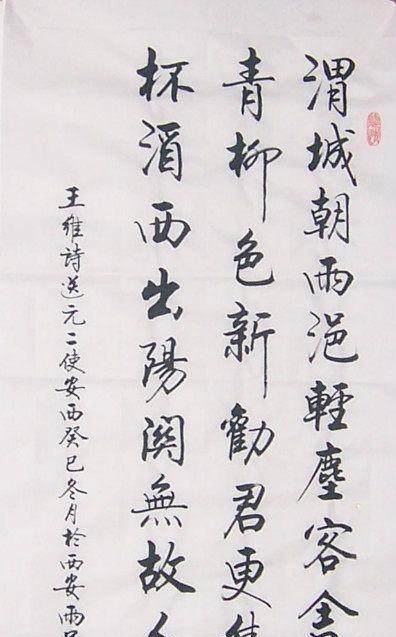 渭城朝雨浥輕塵客舍
青柳色新勸君更
杯酒西出陽關無故人
王維詩送元二使安西癸巳冬月於西安雨